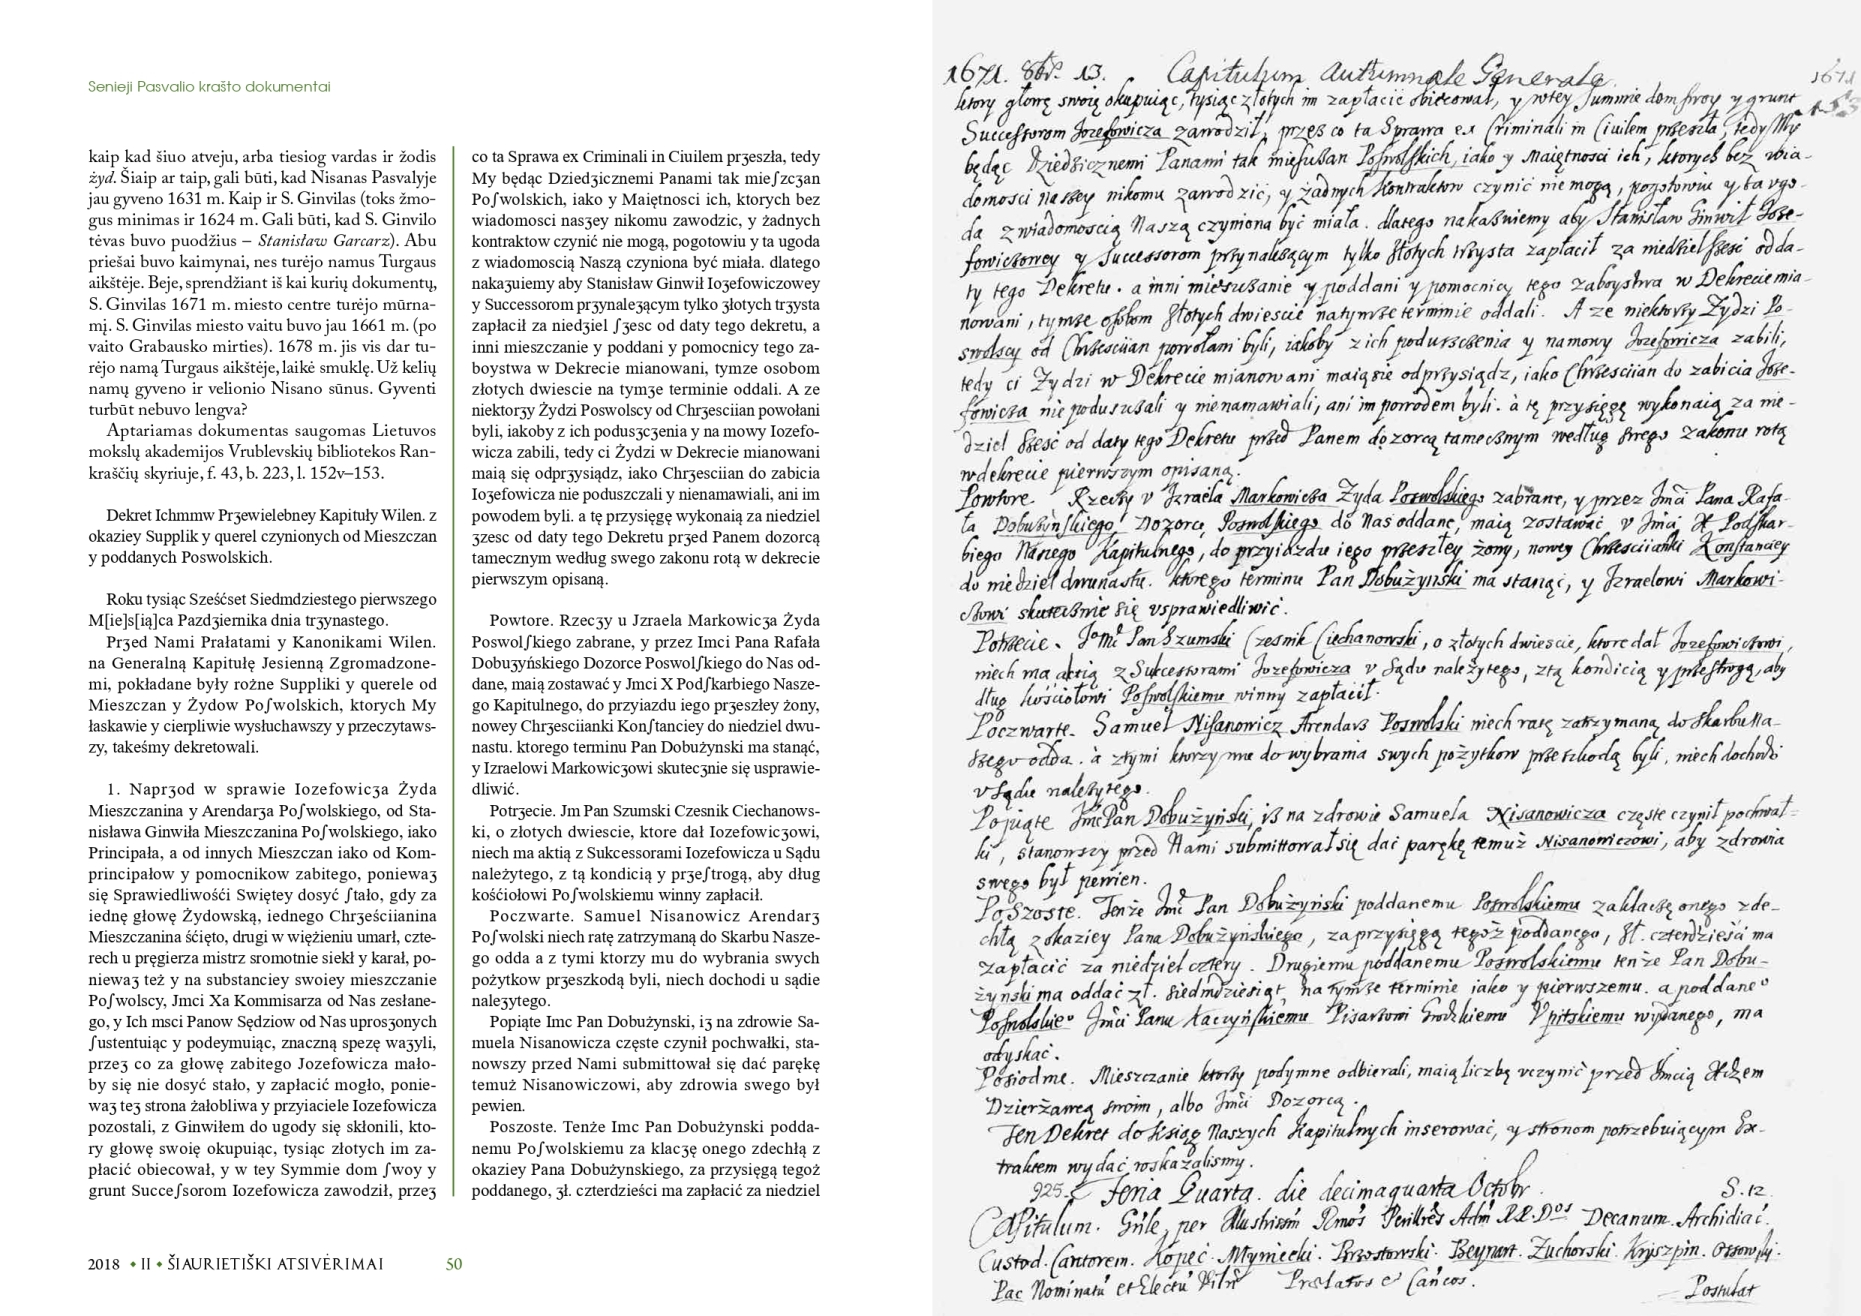 Senieji Pasvalio krašto dokumentai
kaip kad šiuo atveju, arba tiesiog vardas ir žodis
žyd. Šiaip ar taip, gali būti, kad Nisanas Pasvalyje
jau gyveno 1631 m. Kaip ir S. Ginvilas (toks žmo-
gus minimas ir 1624 m. Gali būti, kad S. Ginvilo
tėvas buvo puodžius – Stanisław Garcarz). Abu
priešai buvo kaimynai, nes turėjo namus Turgaus
aikštėje. Beje, sprendžiant iš kai kurių dokumentų,
S. Ginvilas 1671 m. miesto centre turėjo mūrna-
mį. S. Ginvilas miesto vaitu buvo jau 1661 m. (po
vaito Grabausko mirties). 1678 m. jis vis dar tu-
rėjo namą Turgaus aikštėje, laikė smuklę. Už kelių
namų gyveno ir velionio Nisano sūnus. Gyventi
turbūt nebuvo lengva?
Aptariamas dokumentas saugomas Lietuvos
mokslų akademijos Vrublevskių bibliotekos Ran-
kraščių skyriuje, f. 43, b. 223, l. 152v–153.
Dekret Ichmmw Prʒewielebney Kapituły Wilen. z
okaziey Supplik y querel czynionych od Mieszczan
y poddanych Poswolskich.
Roku tysiąc Sześćset Siedmdziestego pierwszego
M[ie]s[ią]ca Pazdʒiernika dnia trʒynastego.
Prʒed Nami Prałatami y Kanonikami Wilen.
na Generalną Kapitułę Jesienną Zgromadzone-
mi, pokładane były rożne Suppliki y querele od
Mieszczan y Żydow Poʃwolskich, ktorych My
łaskawie y cierpliwie wysłuchawszy y przeczytaws-
zy, takeśmy dekretowali.
1. Naprʒod w sprawie Iozefowicʒa Żyda
Mieszczanina y Arendarʒa Poʃwolskiego, od Sta-
nisława Ginwiła Mieszczanina Poʃwolskiego, iako
Principała, a od innych Mieszczan iako od Kom-
principałow y pomocnikow zabitego, poniewaʒ
się Sprawiedliwośći Swiętey dosyć ʃtało, gdy za
iednę głowę Żydowską, iednego Chrʒeściianina
Mieszczanina śćięto, drugi w więżieniu umarł, czte-
rech u pręgierza mistrz sromotnie siekł y karał, po-
niewaʒ też y na substanciey swoiey mieszczanie
Poʃwolscy, Jmci Xa Kommisarza od Nas zesłane-
go, y Ich msci Panow Sędziow od Nas uprosʒonych
ʃustentuiąc y podeymuiąc, znaczną spezę waʒyli,
przeʒ co za głowę zabitego Jozefowicza mało-
by się nie dosyć stało, y zapłacić mogło, ponie-
waʒ teʒ strona żałobliwa y przyiaciele Iozefowicza
pozostali, z Ginwiłem do ugody się skłonili, kto-
ry głowę swoię okupuiąc, tysiąc złotych im za-
płacić obiecował, y w tey Symmie dom ʃwoy y
grunt Succeʃsorom Iozefowicza zawodził, przeʒ
co ta Sprawa ex Criminali in Ciuilem prʒeszła, tedy
My będąc Dziedʒicznemi Panami tak mieʃzcʒan
Poʃwolskich, iako y Maiętnosci ich, ktorych bez
wiadomosci nasʒey nikomu zawodzic, y żadnych
kontraktow czynić nie mogą, pogotowiu y ta ugoda
z wiadomoscią Naszą czyniona być miała. dlatego
nakaʒuiemy aby Stanisław Ginwił Ioʒefowiczowey
y Successorom prʒynaleʒącym tylko ʒłotych trʒysta
zapłacił za niedʒiel ʃʒesc od daty tego dekretu, a
inni mieszczanie y poddani y pomocnicy tego za-
boystwa w Dekrecie mianowani, tymze osobom
złotych dwiescie na tymʒe terminie oddali. A ze
niektorʒy Żydzi Poswolscy od Chrʒesciian powołani
byli, iakoby z ich podusʒcʒenia y na mowy Iozefo-
wicza zabili, tedy ci Żydzi w Dekrecie mianowani
maią się odprʒysiądz, iako Chrʒesciian do zabicia
Ioʒefowicza nie poduszczali y nienamawiali, ani im
powodem byli. a tę przysięgę wykonaią za niedziel
ʒzesc od daty tego Dekretu prʒed Panem dozorcą
tamecznym według swego zakonu rotą w dekrecie
pierwszym opisaną.
Powtore. Rzecʒy u Jzraela Markowicʒa Żyda
Poswolʃkiego zabrane, y przez Imci Pana Rafała
Dobuʒyńskiego Dozorce Poswolʃkiego do Nas od-
dane, maią zostawać y Jmci X Podʃkarbiego Nasze-
go Kapitulnego, do przyiazdu iego prʒeszłey żony,
nowey Chrʒesciianki Konʃtanciey do niedziel dwu-
nastu. ktorego terminu Pan Dobużynski ma stanąć,
y Izraelowi Markowicʒowi skutecʒnie się usprawie-
dliwić.
Potrʒecie. Jm Pan Szumski Czesnik Ciechanows-
ki, o złotych dwiescie, ktore dał Iozefowicʒowi,
niech ma aktią z Sukcessorami Iozefowicza u Sądu
należytego, z tą kondicią y prʒeʃtrogą, aby dług
kośćiołowi Poʃwolskiemu winny zapłacił.
Poczwarte. Samuel Nisanowicz Arendarʒ
Poʃwolski niech ratę zatrzymaną do Skarbu Nasze-
go odda a z tymi ktorzy mu do wybrania swych
pożytkow prʒeszkodą byli, niech dochodi u sądie
naleʒytego.
Popiąte Imc Pan Dobużynski, iʒ na zdrowie Sa-
muela Nisanowicza częste czynił pochwałki, sta-
nowszy przed Nami submittował się dać parękę
temuż Nisanowiczowi, aby zdrowia swego był
pewien.
Poszoste. Tenże Imc Pan Dobużynski podda-
nemu Poʃwolskiemu za klacʒę onego zdechłą z
okaziey Pana Dobużynskiego, za przysięgą tegoż
poddanego, ʒł. czterdzieści ma zapłacić za niedziel
2018 ◆ II ◆ ŠIAURIETIŠKI ATSIVĖRIMAI 50
1671. 8br. 13. Capitulum Autumnale Generale
1671
153
ktory głowę swoię okupuiąc, tysiąc złotych im zapłacić obiecował, y w tey Summie dom swoy y grunt
Successorom Jozefowicza zawodził, przez co ta Sprawa ex Criminali in Ciuilem przeszła, tedy My
będąc Dziedzicznemi Panami tak mieszczan Poswolskich, iako y Maiętnosci ich, ktorych bez wia-
domosci naszey nikomu zawodzić, y żadnych kontraktow czynić nie mogą, pogotowiu y ta ugo-
da z wiadomoscią Naszą czyniona być miała. dlatego nakazuiemy aby Stanisław Ginwił Joze-
fowiczowey y Successorom przynalezącym tylko złotych trzysta zapłacił za niedziel szesc od da-
ty tego Dekretu. a inni mieszczanie y poddani y pomocnicy tego zaboystwa w Dekrecie mia-
nowani, tymze osobom złotych dwiescie na tymze terminie oddali. A ze niektorzy Żydzi Po-
swolscy od Chrzesciian powołani byli, iakoby z ich poduszczenia y namowy Jozefowicza zabili,
tedy ci Żydzi w Dekrecie mianowani maią się odprzysiądz, iako Chrzesciian do zabicia Joze-
fowicza nie poduszczali y nienamawiali, ani im powodem byli. à tę przysięgę wykonaią za nie-
dziel szesć od daty tego Dekretu przed Panem dozorcą tamecznym według swego zakonu rotą
w dekrecie pierwszym opisaną.
Powtore. Rzeczy v Jzraela Markowicza Żyda Poswolskiego zabrane, y przez Jmci Pana Rafa-
ła Dobużyńskiego Dozorcę Poswolskiego do Nas oddane, maią zostawać v Jmci X Podskar-
biego Naszego Kapitulnego, do przyiazdu iego przeszłey żony, nowey Chrzesciianki Konstanciey
do niedziel dwunastu. ktorego terminu Pan Dobużynski ma stanąć, y Jzraelowi Markowi-
czowi skutecznie się vsprawiedliwić.
Potrzecie. Jmc Pan Szumski Czesnik Ciechanowski, o złotych dwiescie, ktore dał Jozefowiczowi,
niech ma aktią z Sukcessorami Jozefowicza v Sądu należytego, z tą kondicią y przestrogą, aby
dług kościołowi Poswolskiemu winny zapłacił.
Poczwarte. Samuel Nisanowicz Arendarz Poswolski niech ratę zatrzymaną do Skarbu Na-
szego odda. à z tymi ktorzy mu do wybrania swych pożytkow przeszkodą byli, niech dochodzi
v Sądu należytego.
Popiąte Jmc Pan Dobużyński, iż na zdrowie Samuela Nisanowicza częste czynił pochwał-
ki, stanowszy przed Nami submittował się dać parękę temuż Nisanowiczowi, aby zdrowia
swego był pewien.
Poszoste. Tenże Jmc Pan Dobużyński poddanemu Poswolskiemu za klaczę onego zde-
chłą z okaziey Pana Dobużyńskiego, za przysięgą tegoż poddanego, zł. czterdzieści ma
zapłacić za niedziel cztery. Drugiemu poddanemu Poswolskiemu tenże Pan Dobu-
żynski ma oddać zł. siedmdziesiąt, na tymze terminie iako y pierwszemu. a poddanego
Poswolskiego Jmci Panu Kaczyńskiemu Pisarzowi Grodzkiemu Vpitskiemu wydanego, ma
odyskać.
Posiodme. Mieszczanie ktorzy podymne odbierali, maią liczbę vczynić przed Jmcią Xdzem
Dzierżawcą swoim, albo Jmci Dozorcą.
Ten Dekret do Ksiąg Naszych Kapitulnych inserować, y stronom potrzebuiącym Ex-
traktem wydać roskazalismy.
925. Feria Quarta. die decimaquarta Octobr. S. 12.
Capitulum. Gnle, per Illustrissim Rmos Perillres Adm RR. Dos Decanum. Archidiac.
Custod. Cantorem. Kopeć. Mlyniecki. Brzostowski. Beynart. Zuchorski. Kryszpin.
Pac Nominatu et Electu Vilń Prælatos et Cancos.
Postulat